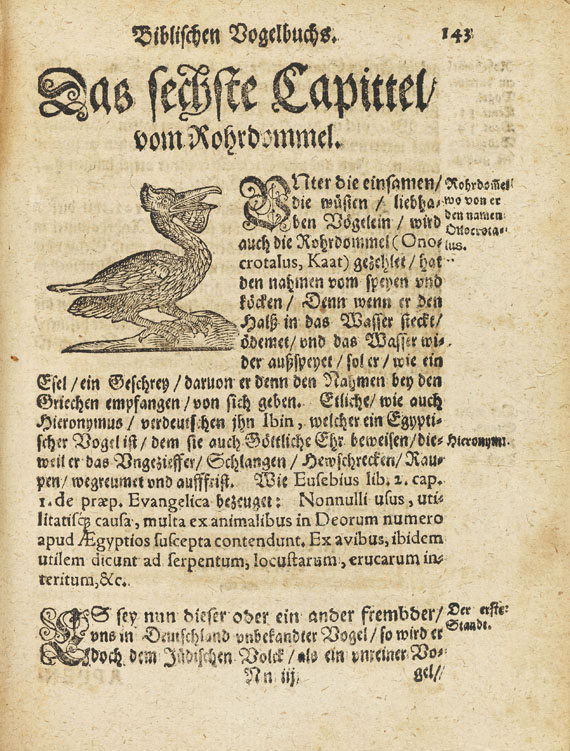 Biblischen Vogelbuchs. 143
Das sechste Capittel/
vom Rohrdommel.
VNter die einsamen/
die wüsten / liebha-
ben Vögelein / wird
auch die Rohrdommel (Ono-
crotalus, Kaat) gezehlet / hat
den nahmen vom speyen vnd
köcken / Denn wenn er den
Halß in das Wasser steckt/
ödemet/ vnd das Wasser wi-
der außspeyet / sol er / wie ein
Esel / ein Geschrey / daruon er denn den Nahmen bey den
Griechen empfangen / von sich geben. Etliche/ wie auch
Hieronymus / verdeutschen jhn Ibin, welcher ein Egypti-
scher Vogel ist / dem sie auch Göttliche Ehr beweisen / die-
weil er das Vngezieffer/ Schlangen / Hewschrecken/ Rau-
pen/ wegreumet vnd aufffrist. Wie Eusebius lib. 2. cap.
1. de præp. Evangelica bezeuget: Nonnulli usus, uti-
litatisq; causa, multa ex animalibus in Deorum numero
apud Ægyptios suscepta contendunt. Ex avibus, ibidem
utilem dicunt ad serpentum, locustarum, erucarum in-
teritum, &c.
Rohrdom̃el
wo von er
den namen
Onocrota-
lus.
Hieronym.
ES sey nun dieser oder ein ander frembder/
vns in Deutschland vnbekandter Vogel / so wird er
doch dem Jüdischen Volck / als ein vnreiner Vo-
Der erste
Standt.
Nn iij gel/